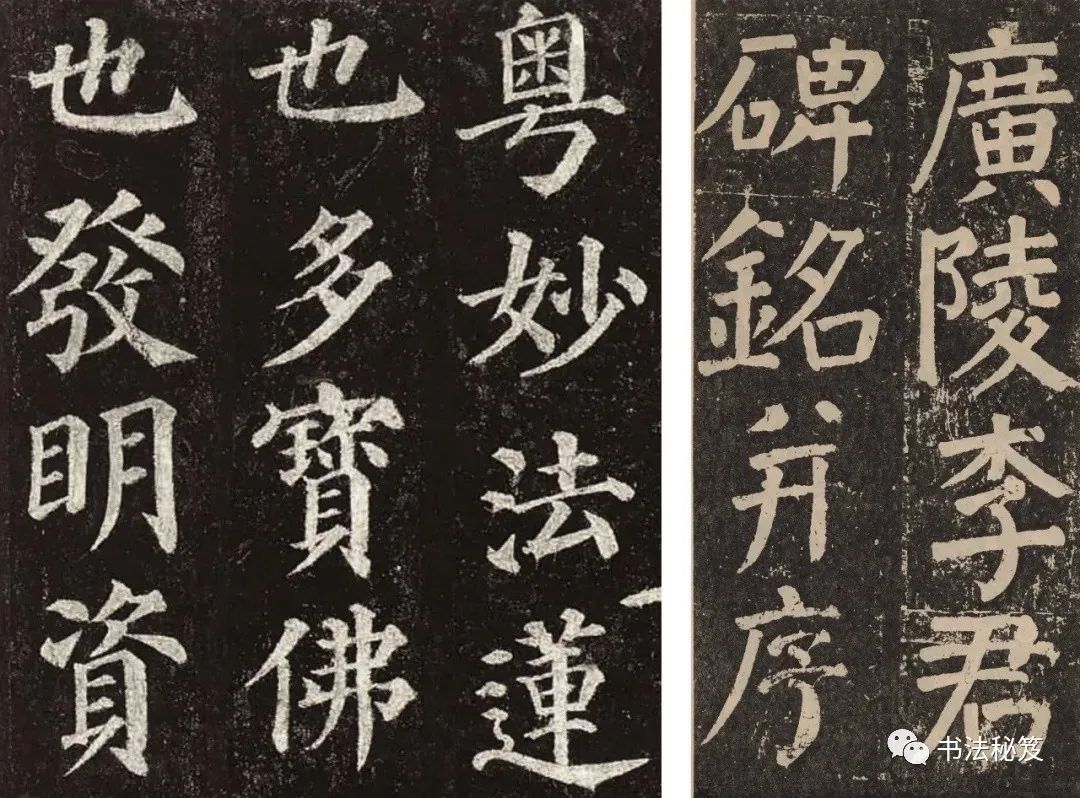 粤妙法蓮
也多寶佛
也發眀資
廣陵李君
碑銘并序
书法秘笈